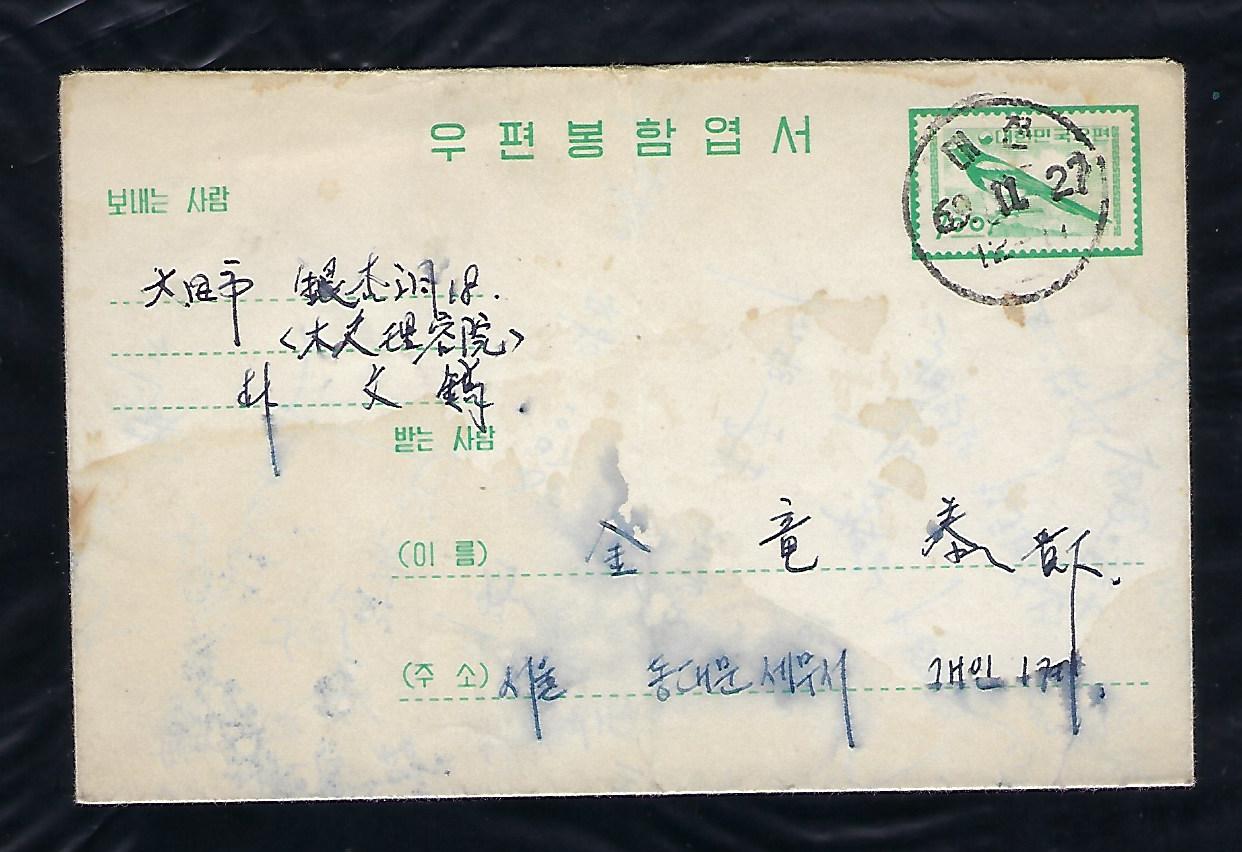 우편봉함엽서
대한민국우편
대전
69 11 27
보내는 사람
大田市 銀杏洞 18.
<木夫理容院>
朴 文
받는 사람
(이 름) 金 竜 泰 貴下.
(주 소) 서울 동대문세무서 개인 1계.